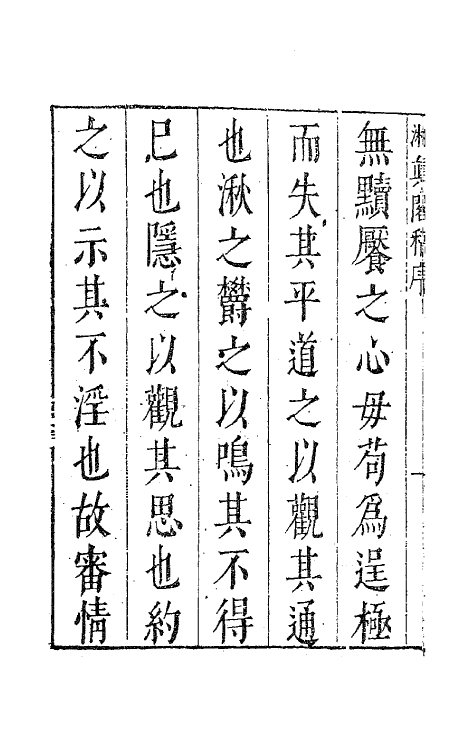 湘真閣稿序
一
無黷饜之心毋苟爲逞極
而失其平道之以觀其通
也湫之欝之以鳴其不得
已也隱之以觀其思也約
之以示其不淫也故審情